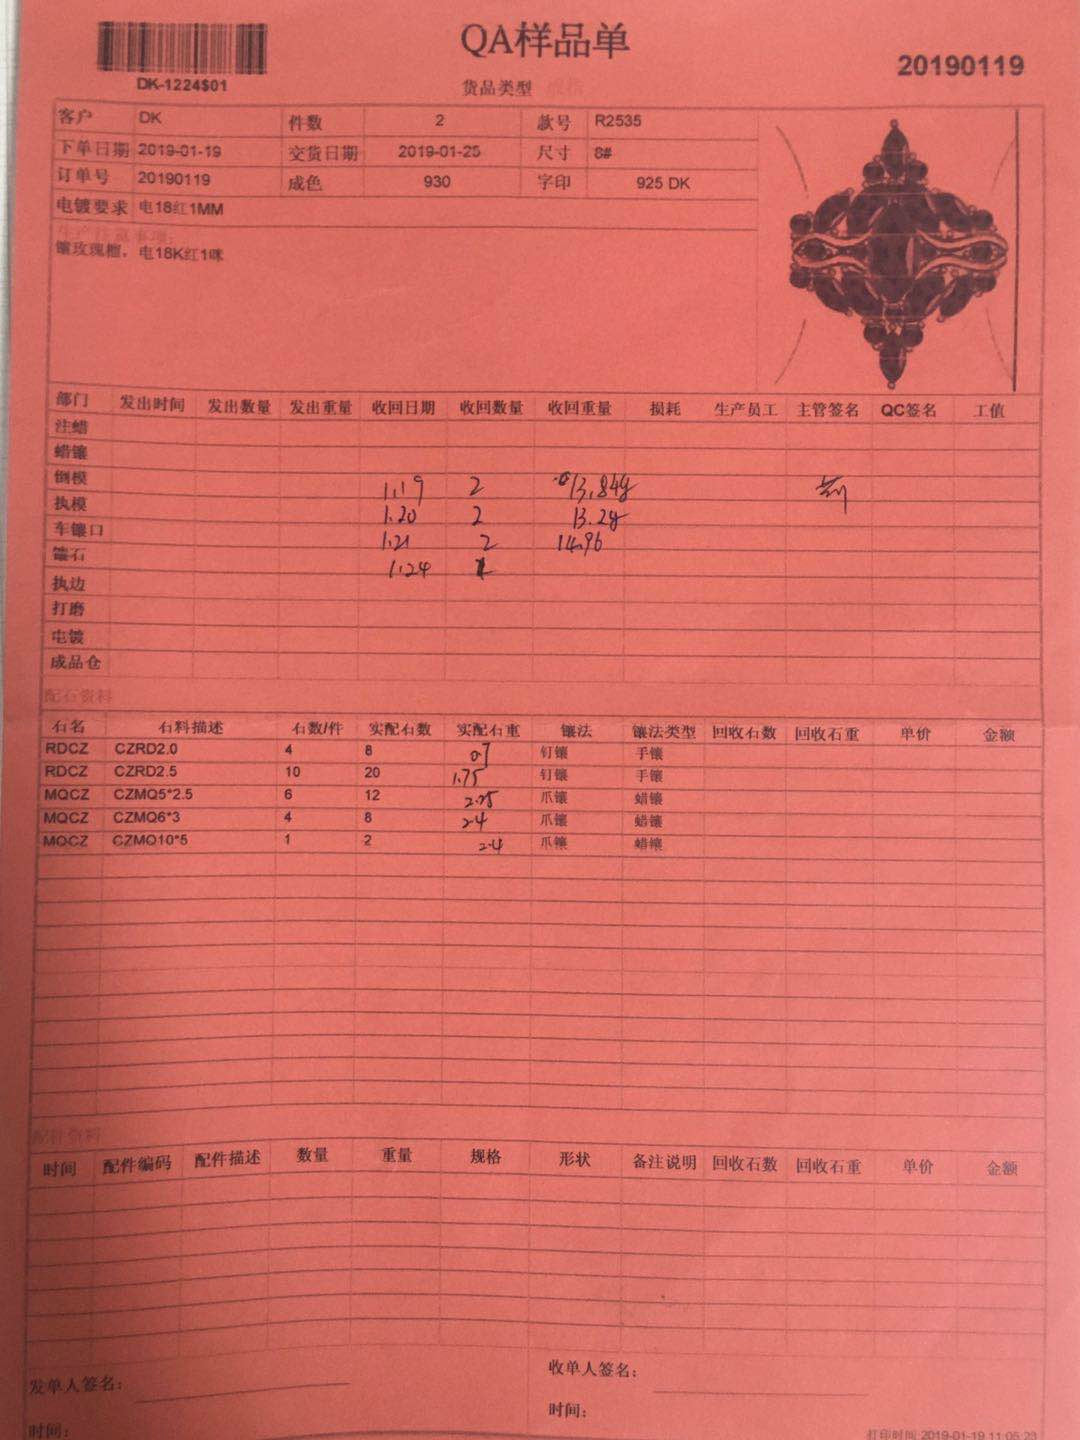 QA样品单
20190119
DK-1224$01
货品类型
客户 DK 件数 2 款号 R2535
下单日期 2019-01-19 交货日期 2019-01-25 尺寸 8#
订单号 20190119 成色 930 字印 925 DK
电镀要求 电18红1MM
生产注意事项:
镶玫瑰榴，电18K红1咪
部门 发出时间 发出数量 发出重量 收回日期 收回数量 收回重量 损耗 生产员工 主管签名 QC签名 工值
注蜡
蜡镶
倒模 1.19 2 13.84g
执模 1.20 2 13.2g
车镶口 1.21 2 14.96
镶石 1.24
执边
打磨
电镀
成品仓
配石资料
石名 石料描述 石数/件 实配石数 实配石重 镶法 镶法类型 回收石数 回收石重 单价 金额
RDCZ CZRD2.0 4 8 0.7 钉镶 手镶
RDCZ CZRD2.5 10 20 1.75 钉镶 手镶
MQCZ CZMQ5*2.5 6 12 2.25 爪镶 蜡镶
MQCZ CZMQ6*3 4 8 2.4 爪镶 蜡镶
MQCZ CZMQ10*5 1 2 2.4 爪镶 蜡镶
配件资料
时间 配件编码 配件描述 数量 重量 规格 形状 备注说明 回收石数 回收石重 单价 金额
发单人签名: 收单人签名:
时间: 时间:
打印时间:2019-01-19 11:05:23